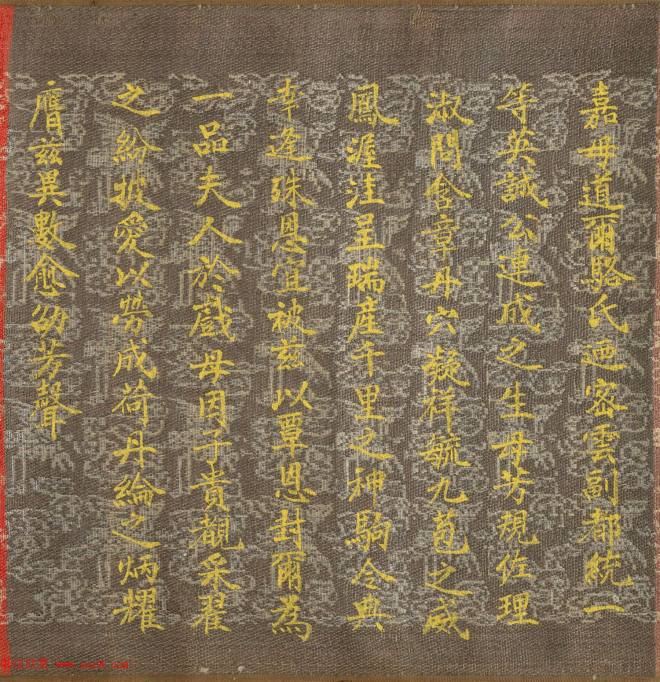 嘉毋道爾駱氏迺密雲副都統一
等英誠公連成之生母芳規佐理
淑問含章丹穴凝祥毓九苞之威
鳳渥洼呈瑞產千里之神駒令典
幸逢殊恩宜被茲以覃恩封爾為
一品夫人於戲母因子貴觀采翟
之紛披愛以勞成荷丹綸之炳耀
膺茲異數愈劭芳聲